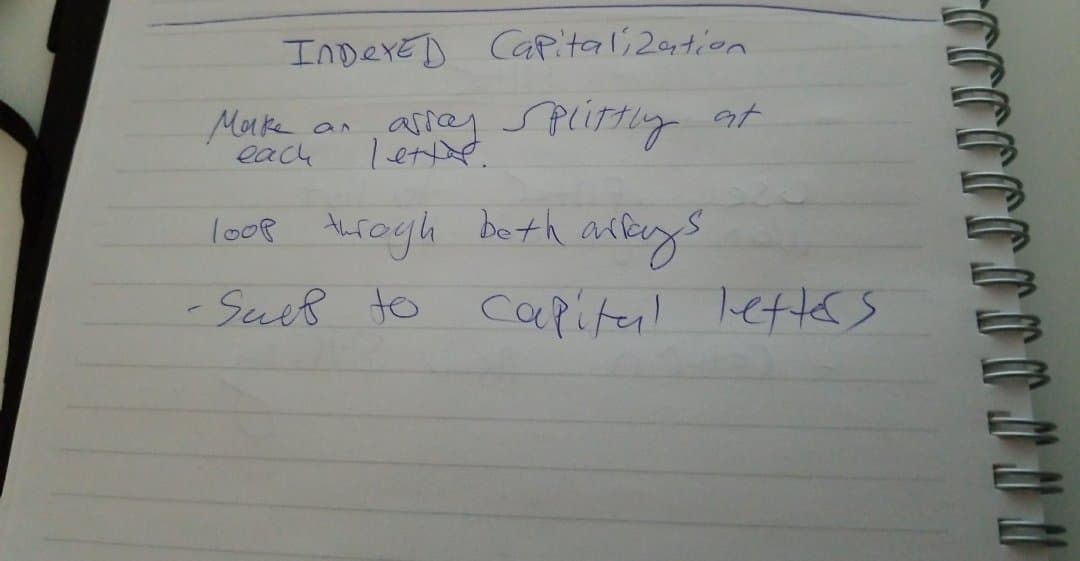 INDEXED Capitalization
Make an array splittly at
each letter.
loop throgh both arrays
- to capital letters